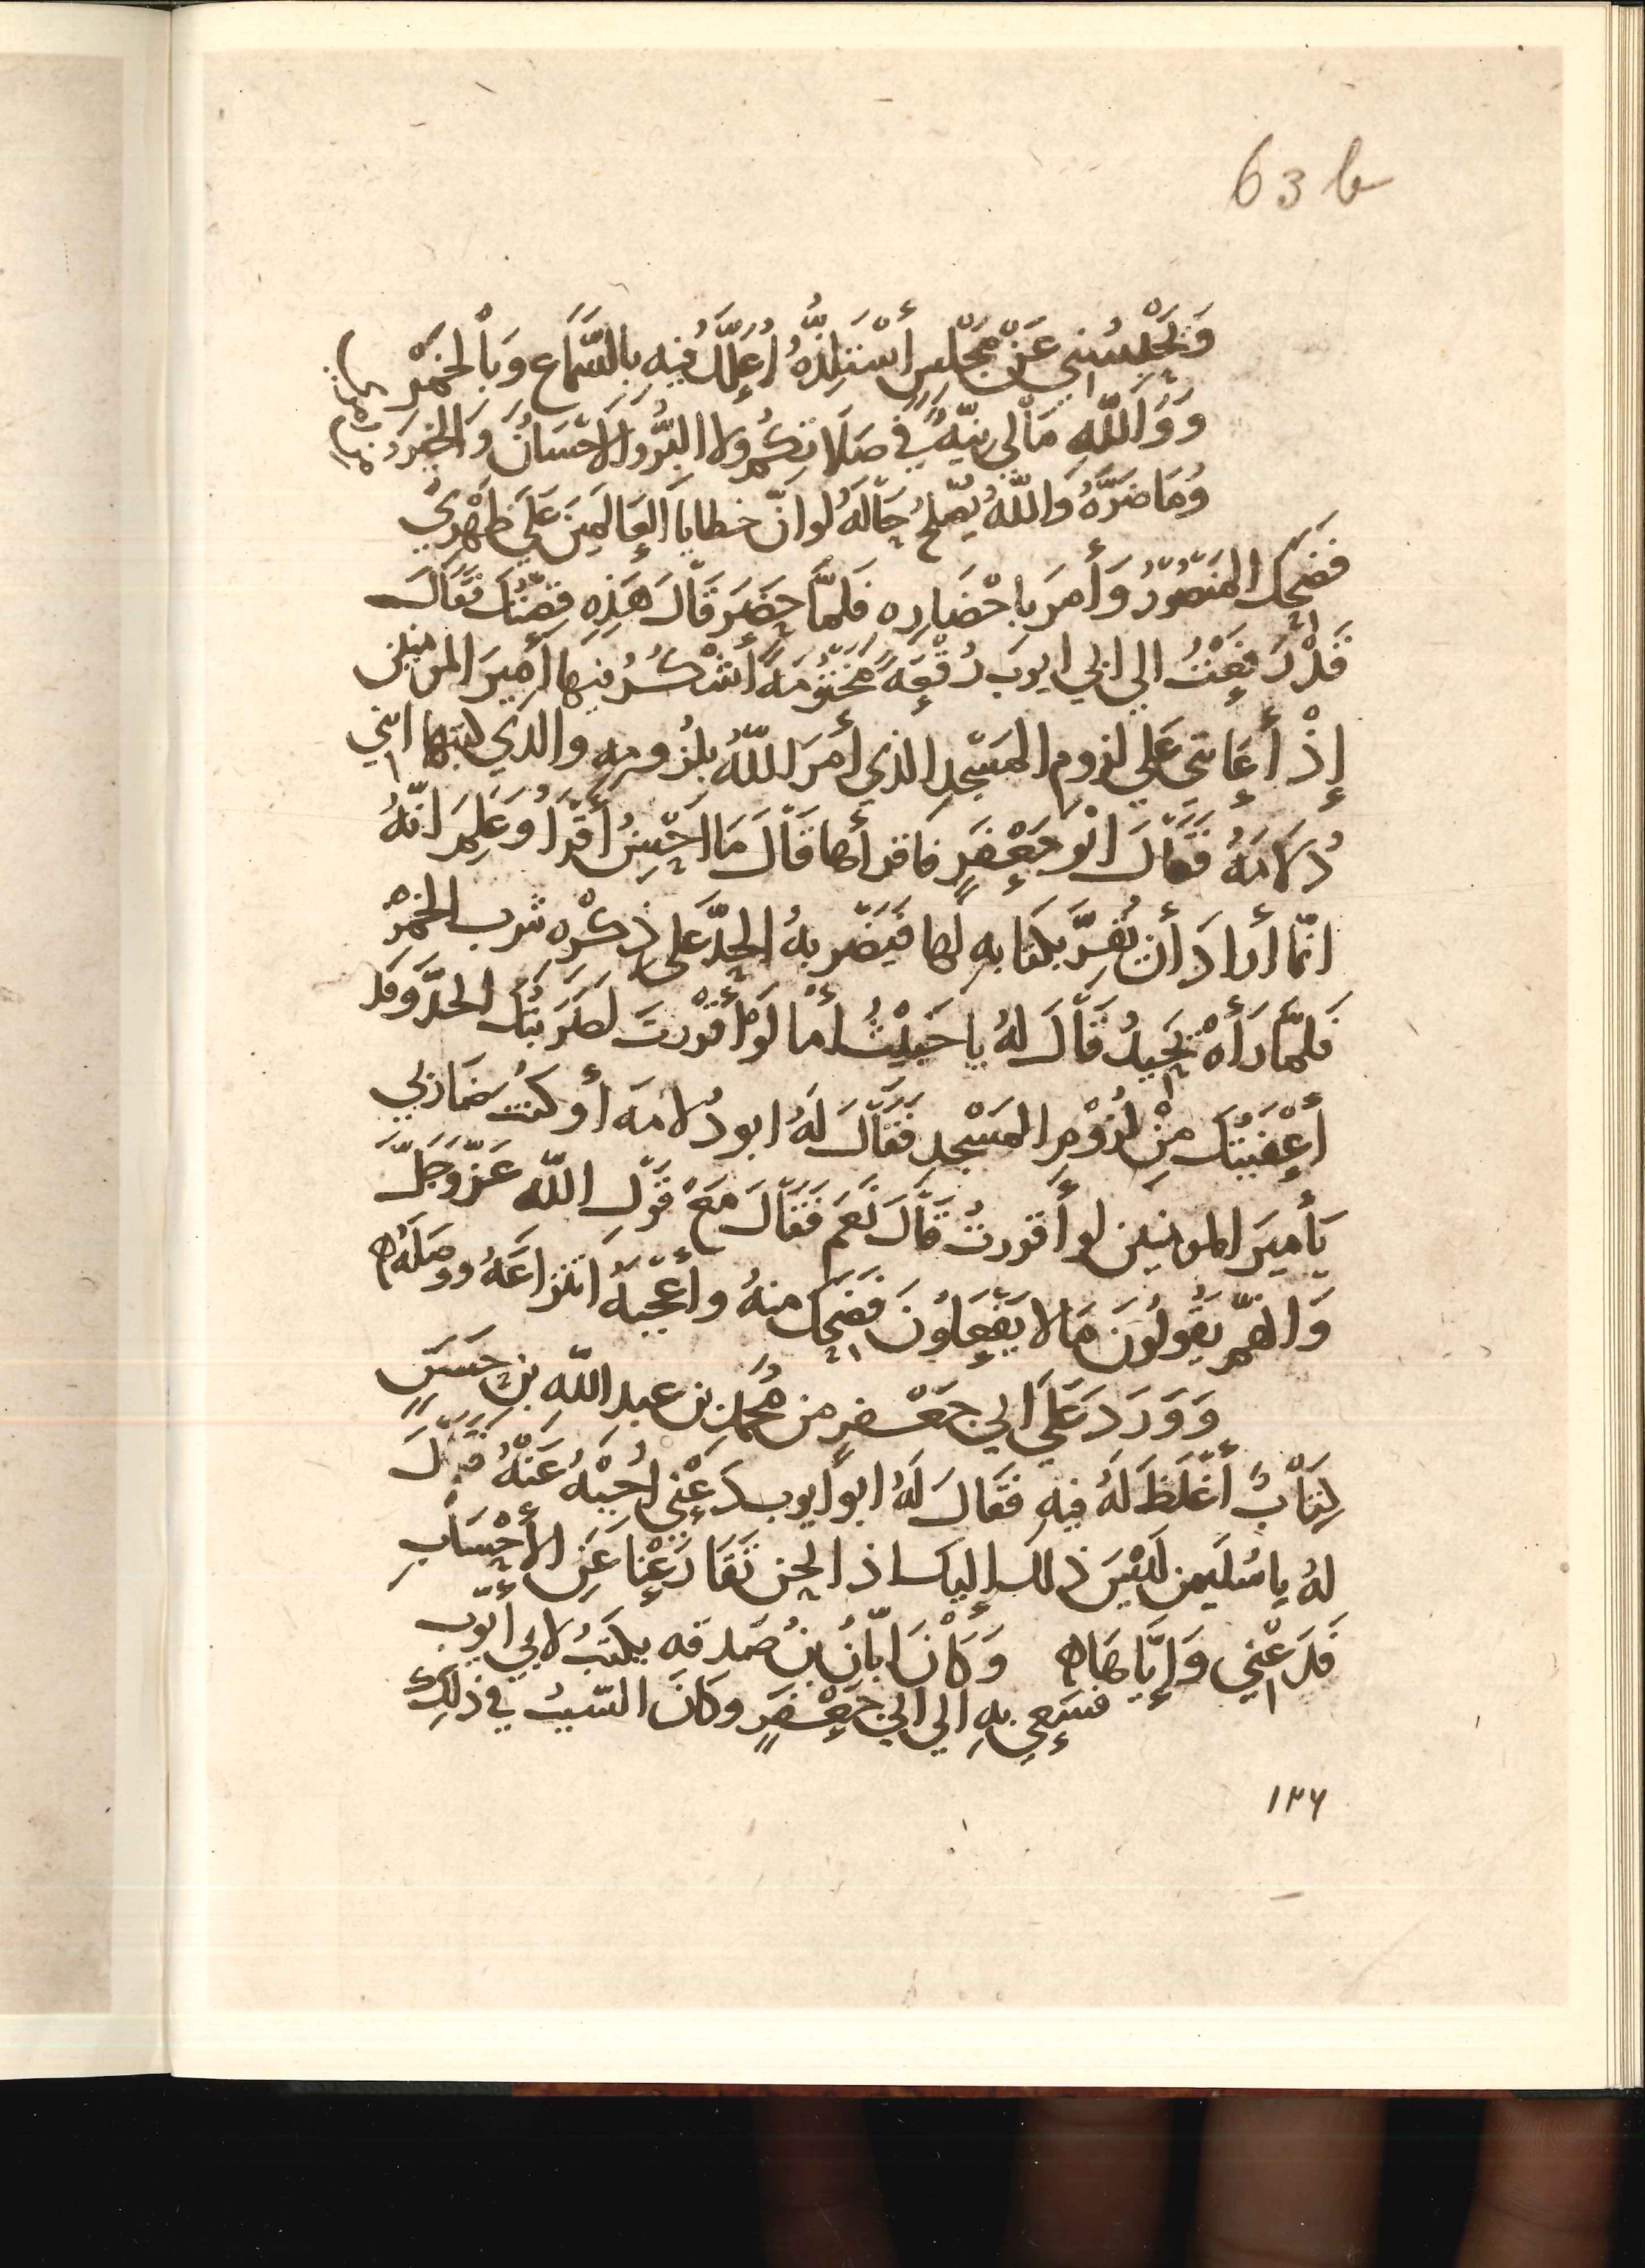 63 b
وَيَحْبِسُنِي عَنْ مَجْلِسٍ أَسْتَلِذُّهُ أُعَلَّلُ فِيهِ بِالسَّمَاعِ وَبِالْخَمْرِ
وَوَاللّهِ مَا لِي نِيَّةٌ فِي صَلَاتِكُم وَلا البِرُّ وَالاحْسَانُ وَالخير
وَمَا ضَرَّهُ وَاللّهُ يُصْلِحُ حَالَهُ لو انّ خطايا العَالمِينَ عَلَى ظَهْرِي
فَضَحِكَ المنصُورُ وَأَمَرَ بِاحْضَارِه فَلمَّا حَضَرَ قَالَ هَذِهِ قِصَّتُكَ فَقَالَ
قَدْ دَفَعْتُ الى ابي ايوبَ رُقْعَةً مَخْتُومَةً أَشْكُرُ فيها أَمِيرَ المومنين
إِذْ أَعَانني عَلى لزوم المَسْجِدِ الذي أَمَرَ اللّهُ بلزومِهِ والذي كتبها ابي
دُلامَهُ فَقَالَ ابُو جَعْفَرٍ فاقرأها قَالَ مَا احْسِنُ أَقْرَأُ وَعَلِمَ انّهُ
انّما أرادَ أن يُقِرَّ بكتابِهِ لها فيَضْرِبهُ الحدَّ عَلى ذِكْرِه شرب الخَمْرِ
فَلمَّا رَأَهُ يَحِيدُ قَالَ لهُ يا خَبِيْثُ أَما لَوْ أَقْرَرْتَ لَضَرَبْتُكَ الحدَّ وَقَد
أَعْفَيْتُكَ مِنْ لُزُوْمِ المَسْجِدِ فَقَالَ لَهُ ابو دُلامَه أَو كنتَ ضَاربي
يَأَمِيرَ المومنين لو أَقررتُ قَالَ نَعَم فَقَالَ مَعَ قَولِ اللّه عَزَّ وَجَلَّ
وَانّهُم يَقُولُونَ مَا لا يَفْعَلُونَ فَضَحِكَ منهُ وأَعْجَبَهُ انتزاعَهُ ووصَلَهُ ه
وَوَرَدَ عَلَى ابي جَعْفرٍ من مُحَمّد بن عبد اللّه بنِ حَسَنٍ
كِتَابٌ أَغلَظَ لَهُ فِيهِ فَقَالَ لَهُ ابو أَيوب دَعْنِي اُجِبْهُ عَنْهُ فقَالَ
لهُ يا سُليمن لَيْسَ ذلك إليك اذا نحن تَقَارَعْنَا عَنِ الأَحْسَابِ
فَدَعْنِي وَإِيَّاهُ ه وَكَانَ ابَانُ بنُ صَدقه يكتبُ لابي أيّوب
فسَعِي بِهِ الي ابي جَعْفَرٍ وَكَانَ السّبَبُ في ذلِكَ
١٣٦